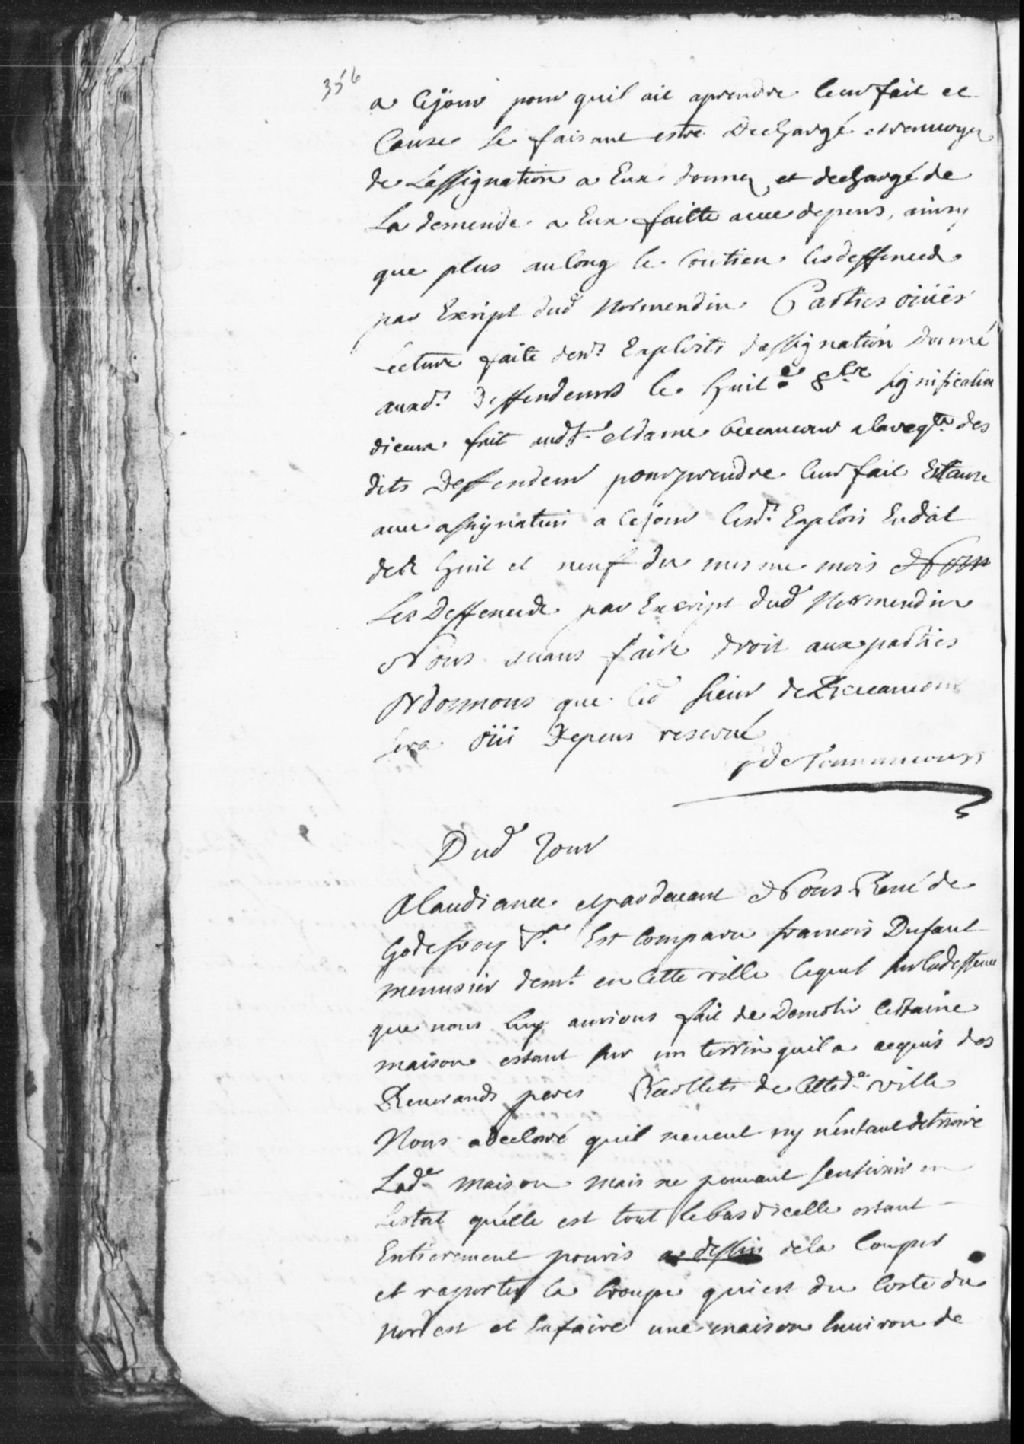 356
a Cejour pour quil ait aprendre leur fait et
Cause Le faisant estre Dechargé et renvoyez
de Lassignation a Eux donnez et dechargé de
La demende a Eux faitte avec depens, ainsy
que plus aulong le Contien lesdeffences
par Escript dud Normendin Parties oüies
Lecture faite desd Exploits dassignation donné
auxd. Deffendeurs le huit e 8bre signification
diceux fait aud Sr. et dame beccancour alareqte des
dits Deffendeur pourprendre leur fait Et Cause
avec assignation a Cejour lesd. Explois Endat
des huit et neuf du mesme mois
Les Deffences par Escript dud Normendin
Nous avans faire droit aux parties
Ordonnons que led sieur de Beccancour
sera oüi Depens reservé
de Tonnancour
Dud Jour
Alaudiance et pardevant Nous René de
Godefroy Sr. Est Comparu francois Dufaut
menusier demt. en Cette ville lequel sur ladeffence
que nous luy aurions fait de Demolir Certaine
maison estant sur un terrin quil a acquis des
Reverands peres Recollets de Cette d. ville
Nous a declaré quil neveut ny n'entant detruire
Lade. maison mais ne pouvant sen servir en
Lestat quelle est tout le bas dicelle estant
Entierement pouris a dessin dela Couper
et raporter la Croupe quiest du Costé du
nordest et La faire une maison Environ de